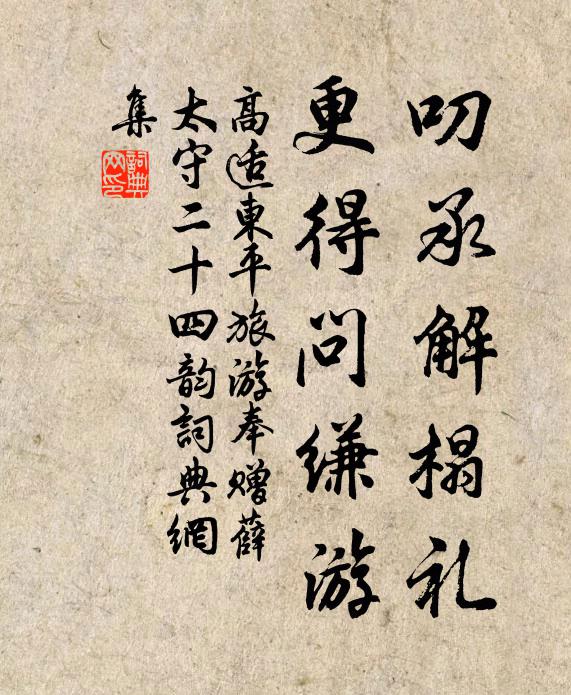 叨承解榻礼
更得问缣游
高适東平旅游奉赠薛
太守二十四韵詞典網
集
詞典网印